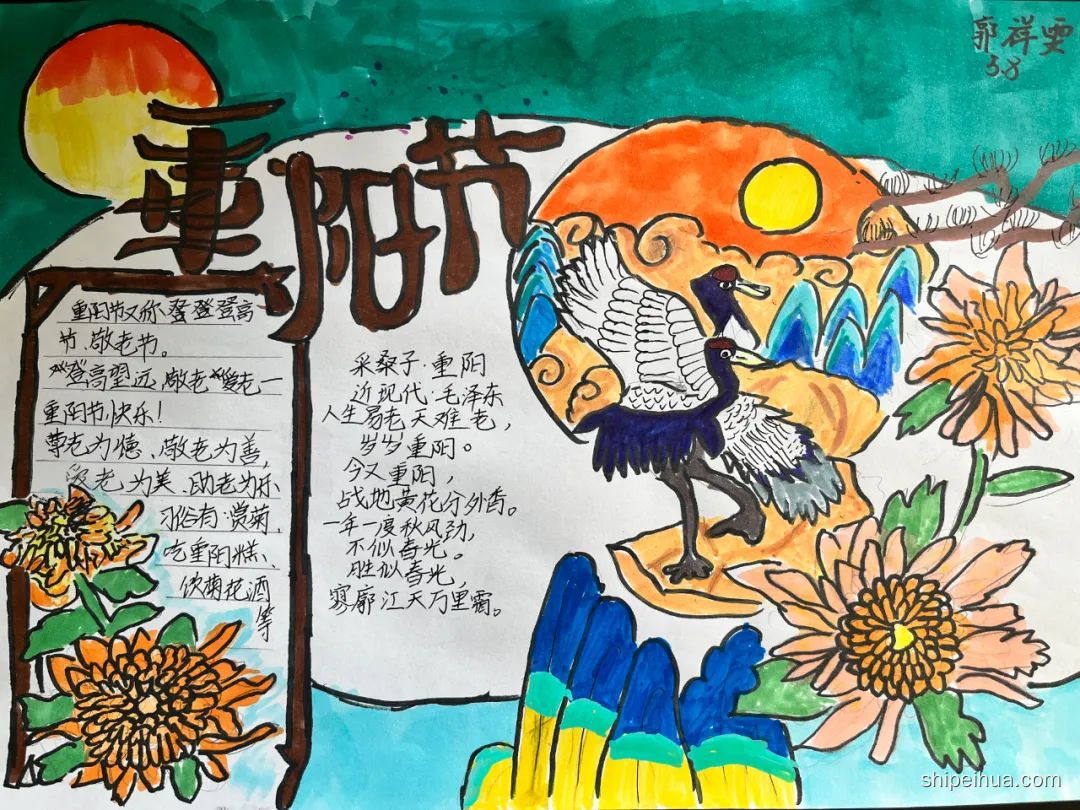 郭祥雯
3.8
重阳节
重阳节又称登登登高
节、敬老节。
登高望远,敬老爱老一
重阳节快乐!
尊老为德、敬老为善,
老为美、助老为乐
习俗有:赏菊、
吃重阳糕、
饮菊花酒
等
采桑子·重阳
近现代·毛泽东
人生易老天难老,
岁岁重阳。
今又重阳,
战地黄花分外香。
一年一度秋风劲,
不似春光。
胜似春光,
寥廓江天万里霜。
shipeihua.com